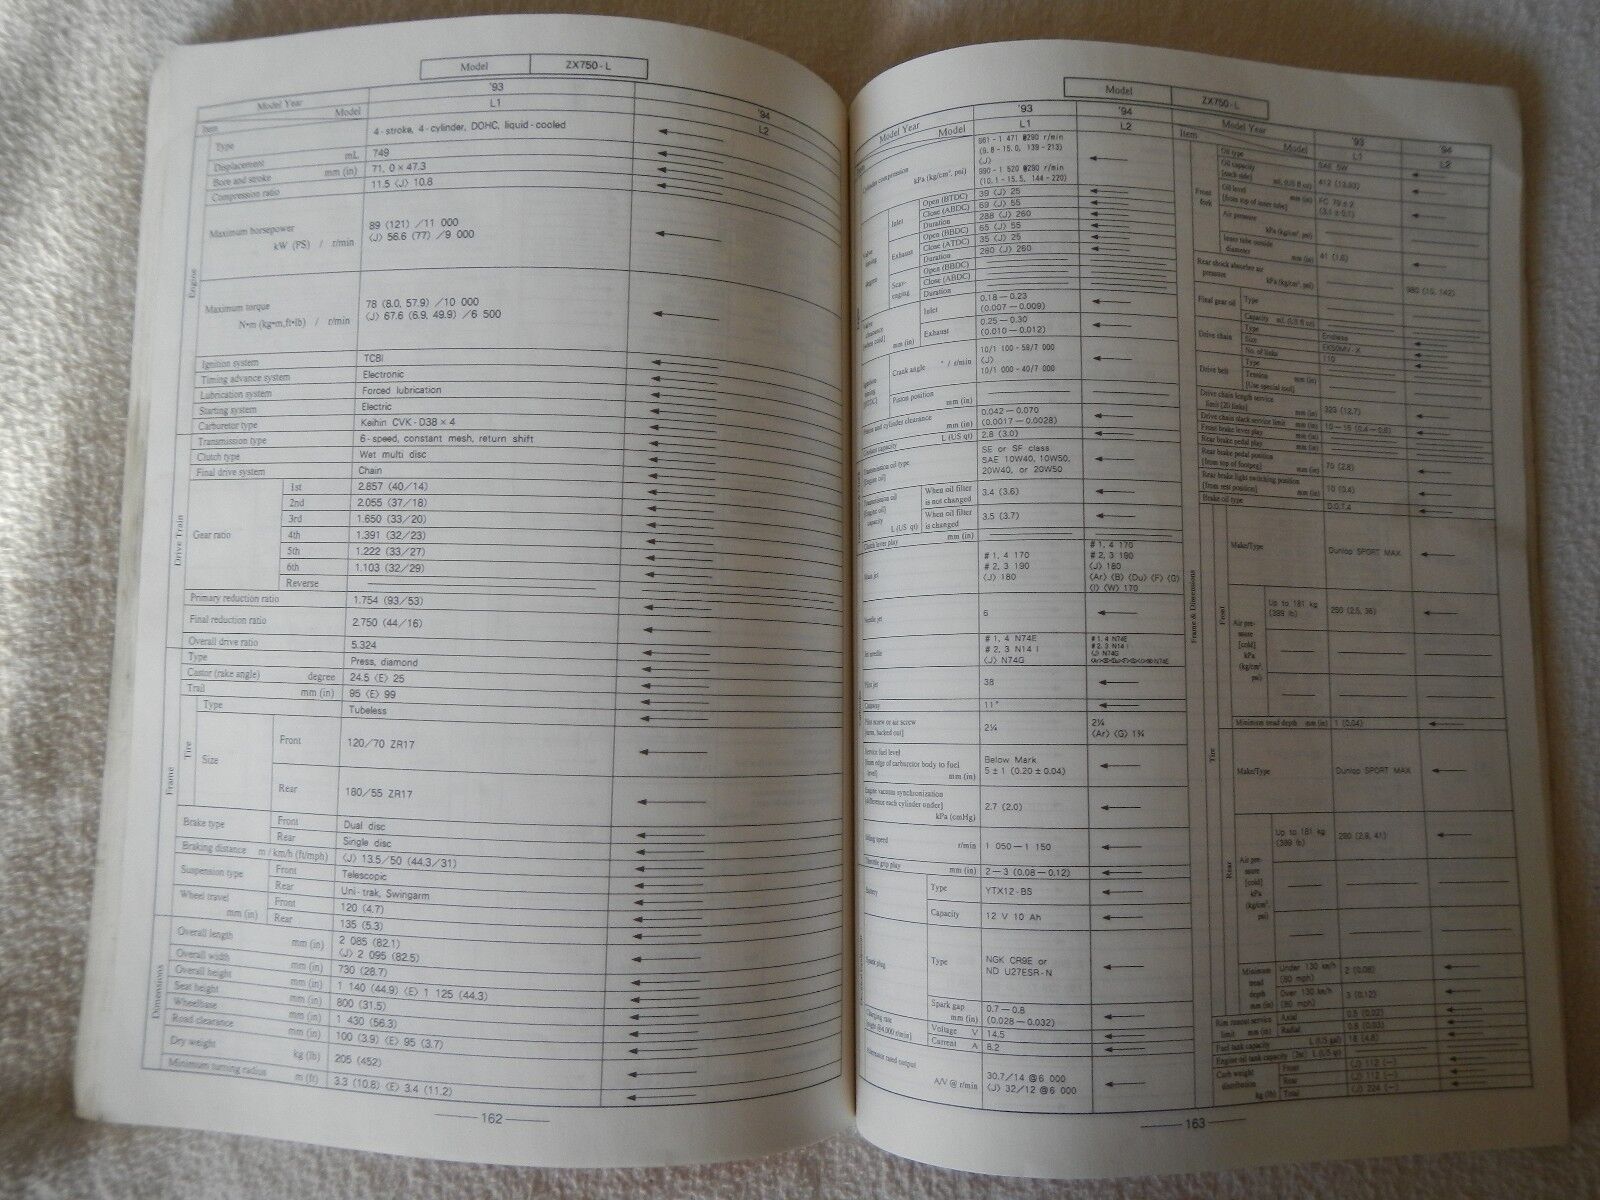 Model ZX750-L
Model Year Model '93 L1 '94 L2
Item
Engine
Type 4-stroke, 4-cylinder, DOHC, liquid-cooled
Displacement mL 749
Bore and stroke mm (in) 71, 0 × 47.3
Compression ratio 11.5 (J) 10.8
Maximum horsepower kW (PS) / r/min 89 (121) /11 000
(J) 56.6 (77) /9 000
Maximum torque N•m (kg•m,ft•lb) / r/min 78 (8.0, 57.9) /10 000
(J) 67.6 (6.9, 49.9) /6 500
Ignition system TCBI
Timing advance system Electronic
Lubrication system Forced lubrication
Starting system Electric
Carburetor type Keihin CVK-D38 × 4
Drive Train
Transmission type 6-speed, constant mesh, return shift
Clutch type Wet multi disc
Final drive system Chain
Gear ratio
1st 2.857 (40/14)
2nd 2.055 (37/18)
3rd 1.650 (33/20)
4th 1.391 (32/23)
5th 1.222 (33/27)
6th 1.103 (32/29)
Reverse
Primary reduction ratio 1.754 (93/53)
Final reduction ratio 2.750 (44/16)
Overall drive ratio 5.324
Frame
Type Press, diamond
Castor (rake angle) degree 24.5 (E) 25
Trail mm (in) 95 (E) 99
Tire
Type Tubeless
Size Front 120/70 ZR17
Rear 180/55 ZR17
Brake type Front Dual disc
Rear Single disc
Braking distance m/km/h (ft/mph) (J) 13.5/50 (44.3/31)
Suspension type Front Telescopic
Rear Uni-trak, Swingarm
Wheel travel mm (in) Front 120 (4.7)
Rear 135 (5.3)
Dimensions
Overall length mm (in) 2 085 (82.1)
(J) 2 095 (82.5)
Overall width mm (in) 730 (28.7)
Overall height mm (in) 1 140 (44.9) (E) 1 125 (44.3)
Seat height mm (in) 800 (31.5)
Wheelbase mm (in) 1 430 (56.3)
Road clearance mm (in) 100 (3.9) (E) 95 (3.7)
Dry weight kg (lb) 205 (452)
Minimum turning radius m (ft) 3.3 (10.8) (E) 3.4 (11.2)
162
Model ZX750-L
Model Year Model '93 L1 '94 L2
Cylinder compression kPa (kg/cm², psi) 961 - 1 471 @290 r/min
(9.8 - 15.0, 139 - 213)
(J)
990 - 1 520 @290 r/min
(10.1 - 15.5, 144 - 220)
Inlet Open (BTDC) 39 (J) 25
Close (ABDC) 69 (J) 55
Duration 288 (J) 260
Exhaust Open (BBDC) 65 (J) 55
Close (ATDC) 35 (J) 25
Duration 280 (J) 260
Scavenging Open (BBDC)
Close (ABDC)
Duration
mm (in) Inlet 0.18 - 0.23
(0.007 - 0.009)
Exhaust 0.25 - 0.30
(0.010 - 0.012)
Crank angle ° / r/min 10/1 100 - 59/7 000
(J)
10/1 000 - 40/7 000
Piston position mm (in)
Piston and cylinder clearance mm (in) 0.042 - 0.070
(0.0017 - 0.0028)
Coolant capacity L (US qt) 2.8 (3.0)
Transmission oil type [Engine oil] SE or SF class
SAE 10W40, 10W50,
20W40, or 20W50
Transmission oil [Engine oil] capacity L (US qt)
When oil filter is not changed 3.4 (3.6)
When oil filter is changed 3.5 (3.7)
Clutch lever play mm (in)
Main jet # 1, 4 170
# 2, 3 190
(J) 180
# 1, 4 170
# 2, 3 190
(J) 180
(Ar) (B) (Du) (F) (G)
(I) (W) 170
Needle jet 6
Jet needle # 1, 4 N74E
# 2, 3 N14 I
(J) N74G
# 1, 4 N74E
# 2, 3 N14 I
(J) N74G
Pilot jet 38
Cutaway 11°
Pilot screw or air screw [turn, backed out] 2¼
2¼
(Ar) (G) 1¾
Service fuel level
[from edge of carburetor body to fuel level] mm (in) Below Mark
5 ± 1 (0.20 ± 0.04)
Engine vacuum synchronization
[difference each cylinder under] kPa (cmHg) 2.7 (2.0)
Idling speed r/min 1 050 - 1 150
Throttle grip play mm (in) 2 - 3 (0.08 - 0.12)
Battery Type YTX12-BS
Capacity 12 V 10 Ah
Spark plug Type NGK CR9E or
ND U27ESR-N
Spark gap mm (in) 0.7 - 0.8
(0.028 - 0.032)
Charging rate Voltage V 14.5
Current A 8.2
Alternator rated output A/V @ r/min 30.7/14 @6 000
(J) 32/12 @6 000
Item Model Year Model '93 L1 '94 L2
Frame & Dimensions
Front fork
Oil type SAE 5W
Oil capacity [each side] mL (US fl oz) 412 (13.93)
Oil level [from top of inner tube] mm (in)
Air pressure kPa (kg/cm², psi)
Inner tube outside diameter mm (in) 41 (1.6)
Rear shock absorber air pressure kPa (kg/cm², psi) 980 (10, 142)
Final gear oil Type
Capacity mL (US fl oz)
Drive chain Type Endless
Size EK50MV-X
No. of links 110
Drive belt Type
Tension mm (in)
[Use special tool]
Drive chain length service limit [20 links] mm (in) 323 (12.7)
Drive chain slack service limit mm (in)
Front brake lever play mm (in)
Rear brake pedal play mm (in)
Rear brake pedal position [from top of footpeg] mm (in) 70 (2.8)
Rear brake light switching position [from rest position] mm (in) 10 (0.4)
Brake oil type
Tire
Front
Make/Type Dunlop SPORT MAX
Air pressure [cold] kPa (kg/cm², psi)
Up to 181 kg (399 lb) 250 (2.5, 36)
Minimum tread depth mm (in) 1 (0.04)
Rear
Make/Type Dunlop SPORT MAX
Air pressure [cold] kPa (kg/cm², psi)
Up to 181 kg (399 lb) 290 (2.9, 41)
Minimum tread depth mm (in)
Under 130 km/h (80 mph) 2 (0.08)
Over 130 km/h (80 mph) 3 (0.12)
Rim runout service limit mm (in) Axial 0.5 (0.02)
Radial
Fuel tank capacity L (US gal) 18 (4.8)
Engine oil tank capacity L (US qt)
Curb weight distribution kg (lb) Front (J) 112 (-)
Rear (J) 112 (-)
Total (J) 224 (-)
163